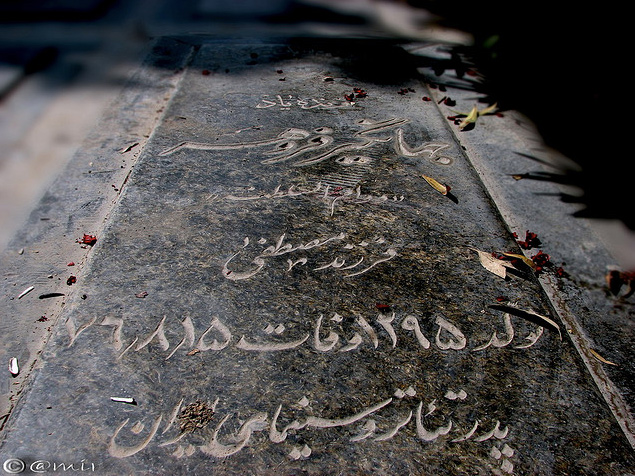 زنده یاد
جهانگیر فروهر
فرزند مصطفی
تولد ۱۲۹۵ وفات ۱۵ر۸ر۷۶
پدر تئاتر و سینمای ایران
© @mir